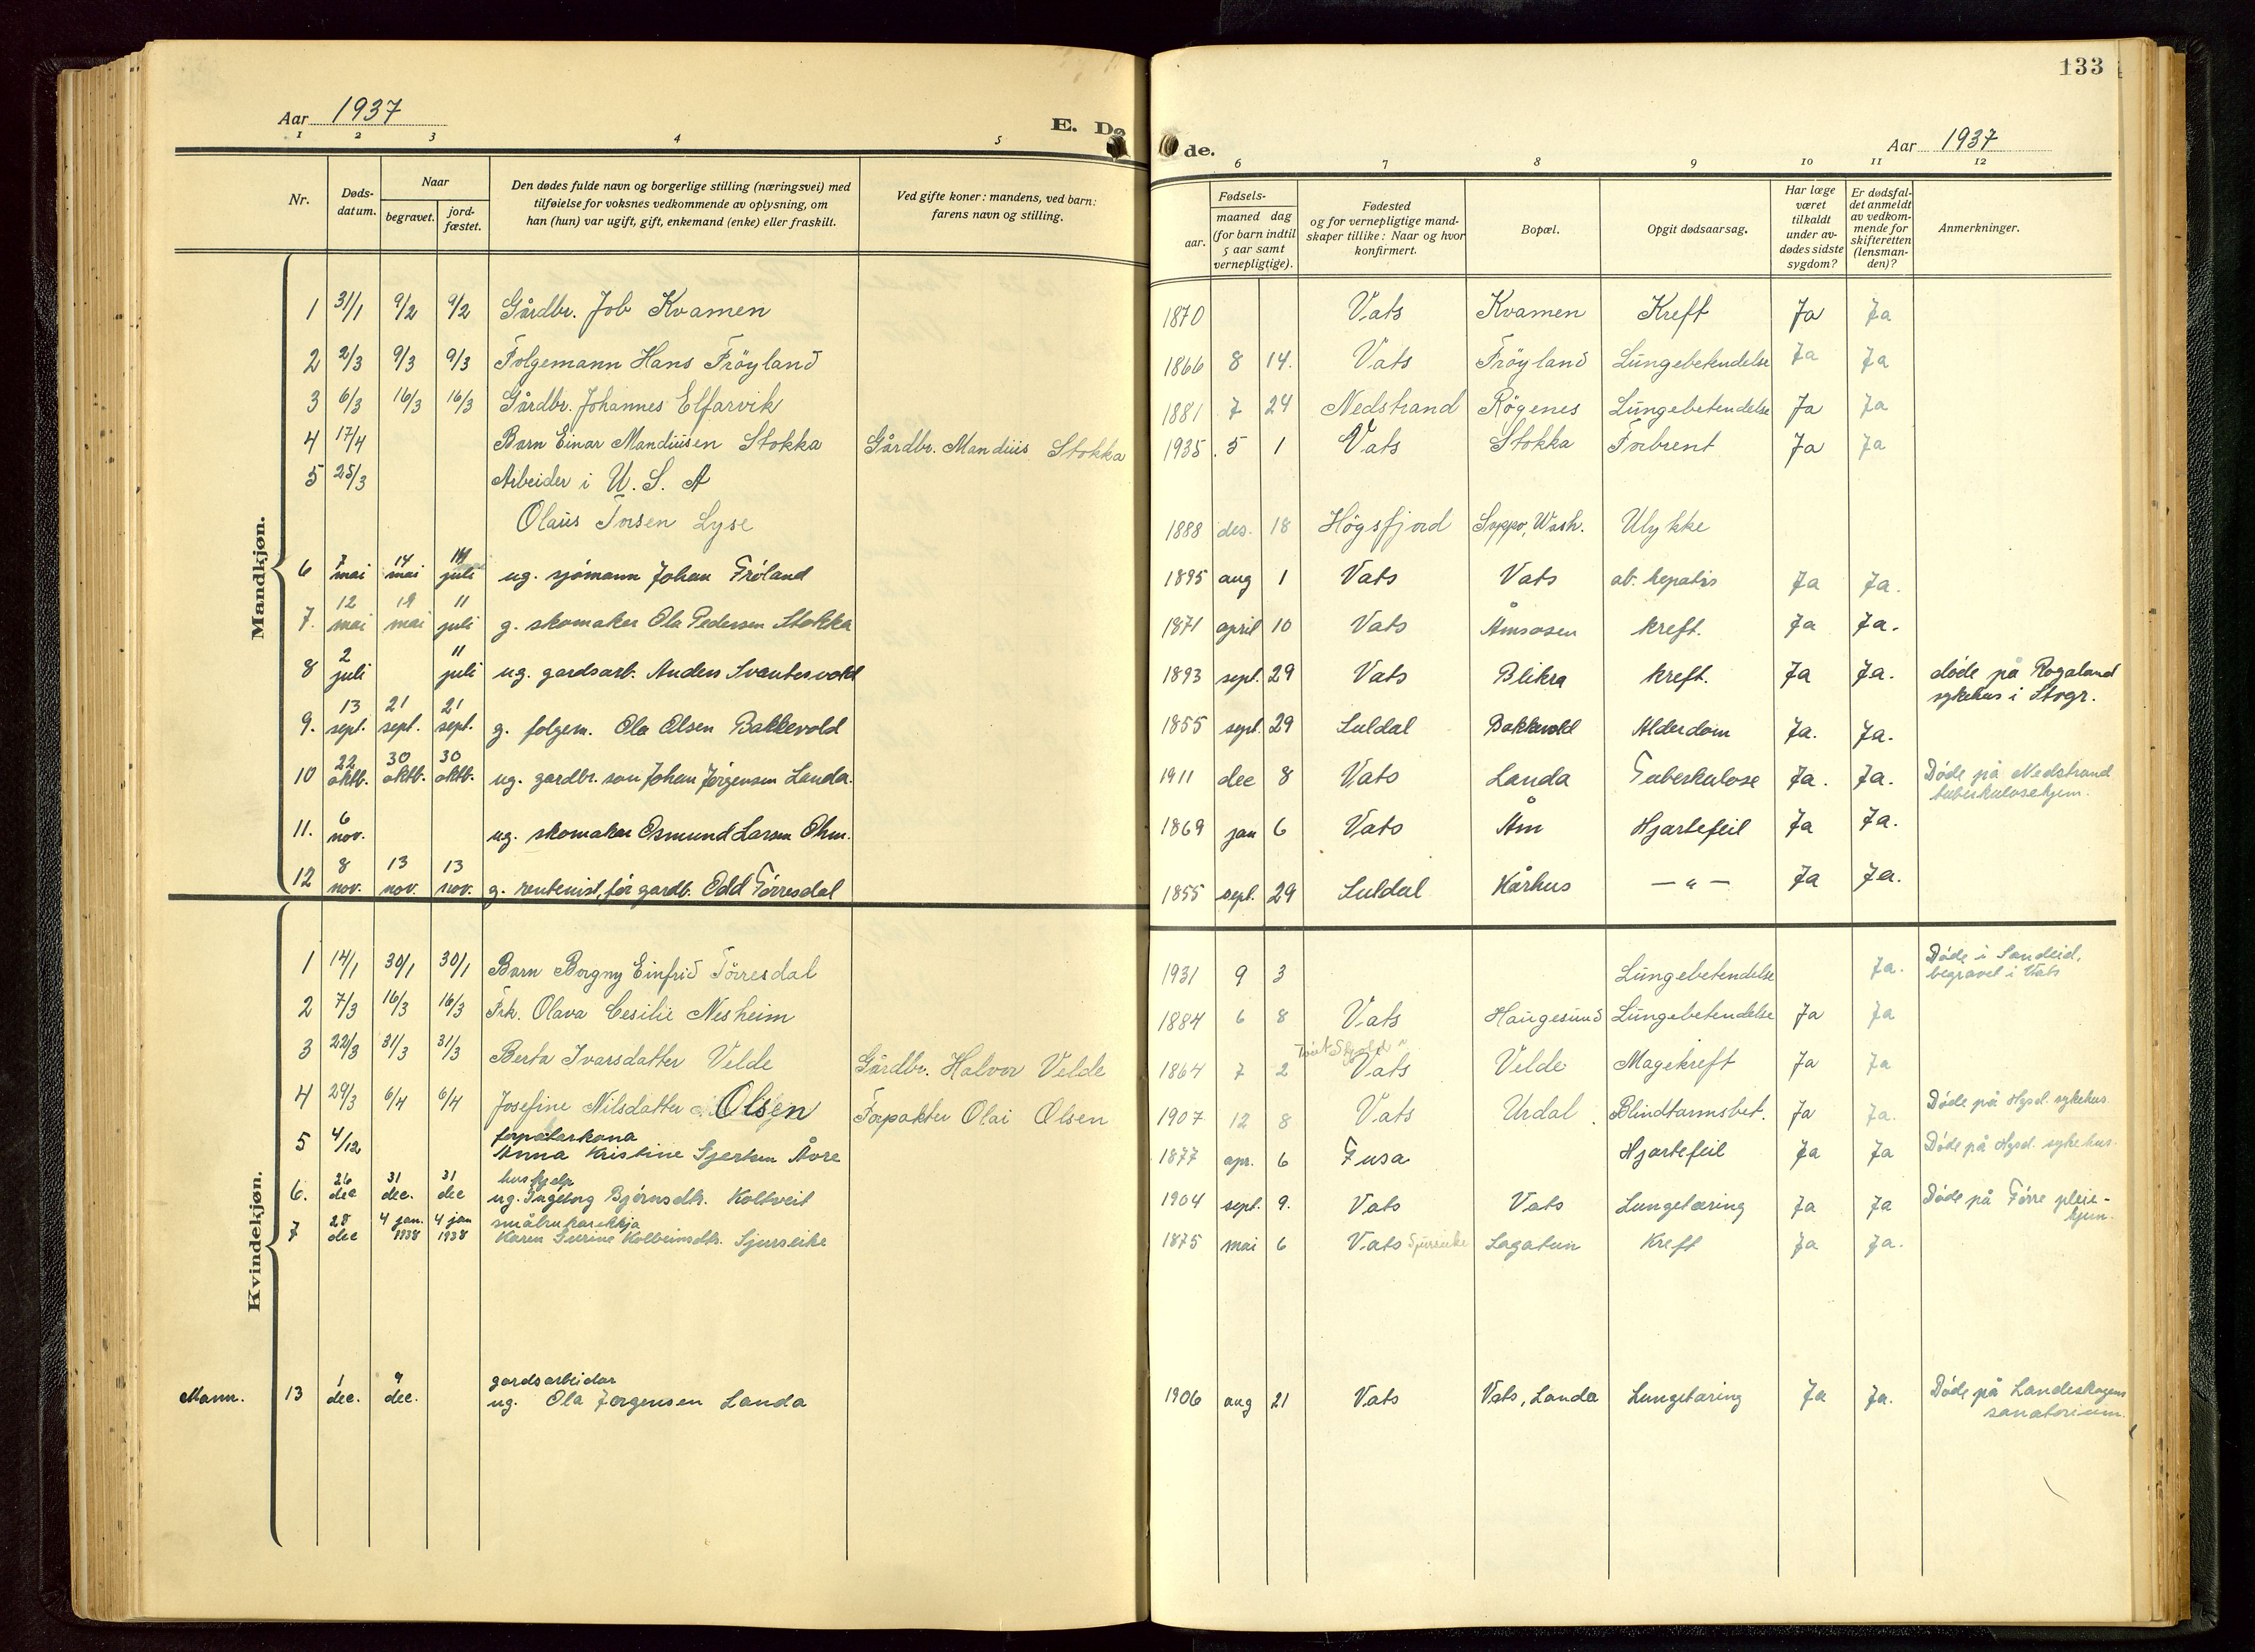 133
Aar 1937
E. Dø
de.
Aar 1937
1 2 3 4 5
6 7 8 9 10 11 12
Nr.
Døds-
datum.
Naar
begravet.
jord-
fæstet.
Den dødes fulde navn og borgerlige stilling (næringsvei) med
tilføielse for voksnes vedkommende av oplysning, om
han (hun) var ugift, gift, enkemand (enke) eller fraskilt.
Ved gifte koner: mandens, ved barn:
farens navn og stilling.
Fødsels-
aar.
maaned dag
(for barn indtil
5 aar samt
vernepligtige).
Fødested
og for vernepligtige mand-
skaper tillike: Naar og hvor
konfirmert.
Bopæl.
Opgit dødsaarsag.
Har læge
været
tilkaldt
under av-
dødes sidste
sygdom?
Er dødsfal-
det anmeldt
av vedkom-
mende for
skifteretten
(lensman-
den)?
Anmerkninger.
Mandkjøn.
1 31/1 9/2 9/2 Gårdbr. Job Kvamen 1870 Vats Kvamen Kreft Ja Ja
2 2/3 9/3 9/3 Folgemann Hans Fröyland 1866 8 14. Vats Fröyland Lungebetendelse Ja Ja
3 6/3 16/3 16/3 Gårdbr. Johannes Elfarvik 1881 7 24 Nedstrand Rögenes Lungebetendelse Ja Ja
4 17/4 Barn Einar Mandiusen Stokka Gårdbr. Mandius Stokka 1935 5 1 Vats Stokka Forbrent Ja Ja
5 25/3 Arbeider i U. S. A
Olaus Torsen Lyse 1888 des. 18 Högsfjord Wash. Ulykke
6 7 mai 14 mai 11 juli ug. sjömann Johan Fröland 1895 aug 1 Vats Vats ab. hepatis Ja Ja.
7. 12 mai 19 mai 11 juli g. skomaker Ola Pedersen Stokka 1871 april 10 Vats Åmsosen kreft. Ja Ja.
8 2 juli 11 juli ug. gardsarb. Anders Svantesvold 1893 sept. 29 Vats Blikra kreft. Ja Ja. døde på Rogaland
sykehus i Stvgr.
9. 13 sept. 21 sept. 21 sept. g. folgem. Ola Olsen Bakkevold 1855 sept. 29 Suldal Bakkevold Alderdom Ja. Ja.
10 22 oktb. 30 oktb. 30 oktb. ug. gardbr. son Johan Jørgensen Landa. 1911 dec 8 Vats Landa Tuberkulose Ja. Ja. Døde på Nedstrand
tuberkulosehjem.
11. 6 nov. ug. skomaker Osmund Larsen Ohm. 1869 jan 6 Vats Åm Hjartefeil Ja Ja.
12 8 nov. 13 nov. 13 nov. g. rentenist, før gardb. Odd Tørresdal 1855 sept. 29 Suldal Kårhus — " — Ja Ja.
Kvindekjøn.
1 14/1 30/1 30/1 Barn Borgny Einfrid Törresdal 1931 9 3 Lungebetendelse Ja. Døde i Sandeid,
begravet i Vats
2 7/3 16/3 16/3 Frk. Olava Cesilie Nesheim 1884 6 8 Vats Haugesund Lungebetendelse Ja Ja
3 22/3 31/3 31/3 Berta Ivarsdatter Velde Gårdbr. Halvor Velde 1864 7 2 Vats Velde Magekreft Ja Ja
4 29/3 6/4 6/4 Josefine Nilsdatter Olsen Forpakter Olai Olsen 1907 12 8 Vats Urdal Blindtarmsbet. Ja Ja. Døde på Hgsd. sykehus
forpaterkona
5 4/12 Anna Kristine Gjertsen Åvre 1877 apr. 6 Fusa Hjartefeil Ja Ja Døde på Hgsd. sykehus.
hushjelp
6. 26 dec 31 dec. 31 dec ug. Ingeborg Bjørnsdtr. Koltveit 1904 sept. 9. Vats Vats Lungetæring Ja Ja Døde på Førre pleie-
hjem.
småbrukarekkja
7 28 dec 4 jan. 1938 4 jan 1938 Karen Kolbeinsdtr. Sjurseike 1875 mai 6 Vats Sjurseike Lagatun Kreft Ja Ja.
gardsarbeidar
Mann. 13 1 dec. 9 dec. ug. Ola Jørgensen Landa 1906 aug 21 Vats Vats, Landa Lungetæring Ja Ja. Døde på Landeskogens
sanatorium.